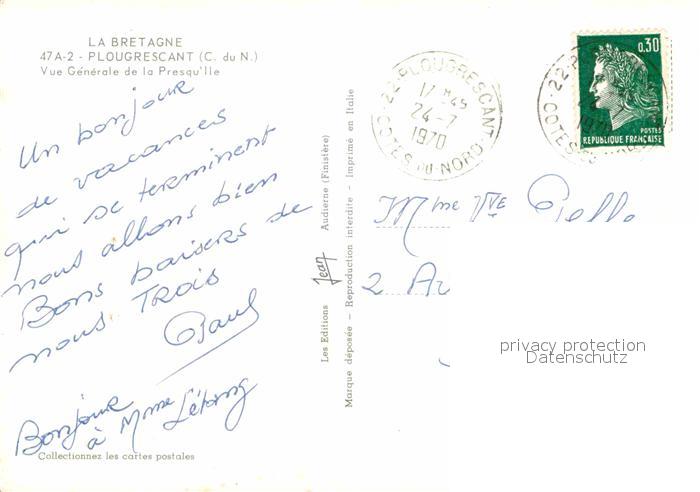 LA BRETAGNE
47A-2 - PLOUGRESCANT (C. du N.)
Vue Générale de la Presqu'Ile
Un bonjour
de vacances
qui se terminent
nous allons bien
Bons baisers de
nous TROIS
Paul
Bonjour
à Mme Létang
Collectionnez les cartes postales
Les Editions Jean Audierne (Finistère)
Marque déposée - Reproduction interdite - Imprimé en Italie
22-PLOUGRESCANT
17H45
24-7
1970
COTES DU NORD
22-P
1970
COTES
0.30
POSTES
REPUBLIQUE FRANÇAISE
Mme Vve
2 Av
privacy protection
Datenschutz